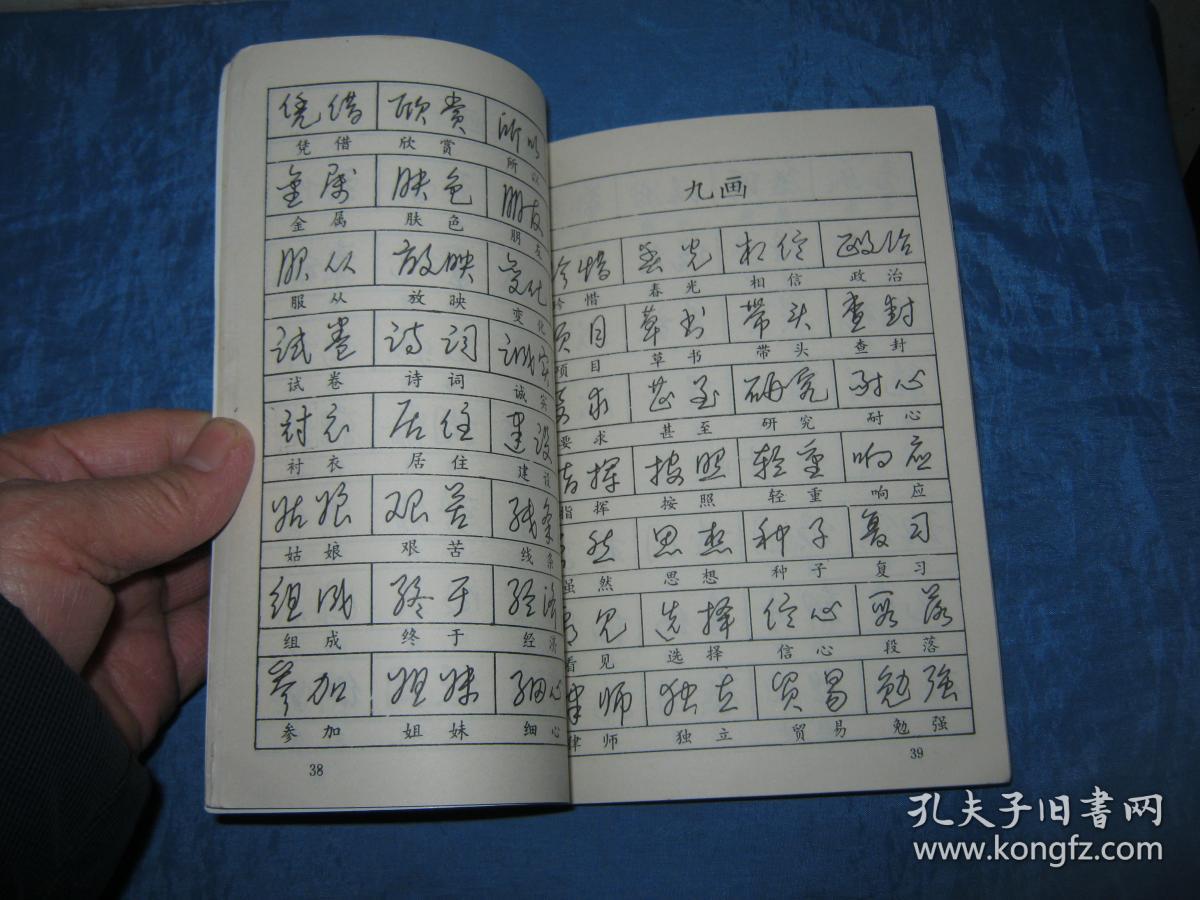 凭借 欣赏 所以
凭借 欣赏 所以
金属 肤色 朋友
金属 肤色 朋友
服从 放映 变化
服从 放映 变化
试卷 诗词 诚实
试卷 诗词 诚实
衬衣 居住 建设
衬衣 居住 建设
姑娘 艰苦 线条
姑娘 艰苦 线条
组成 终于 经济
组成 终于 经济
参加 姐妹 细心
参加 姐妹 细心
38
九画
惜 春光 相信 政治
惜 春光 相信 政治
项目 草书 带头 查封
项目 草书 带头 查封
要求 甚至 研究 耐心
要求 甚至 研究 耐心
指挥 按照 轻重 响应
指挥 按照 轻重 响应
然 思想 种子 复习
虽然 思想 种子 复习
看见 选择 信心 段落
看见 选择 信心 段落
律师 独立 贸易 勉强
律师 独立 贸易 勉强
39
孔夫子旧書网
www.kongfz.com